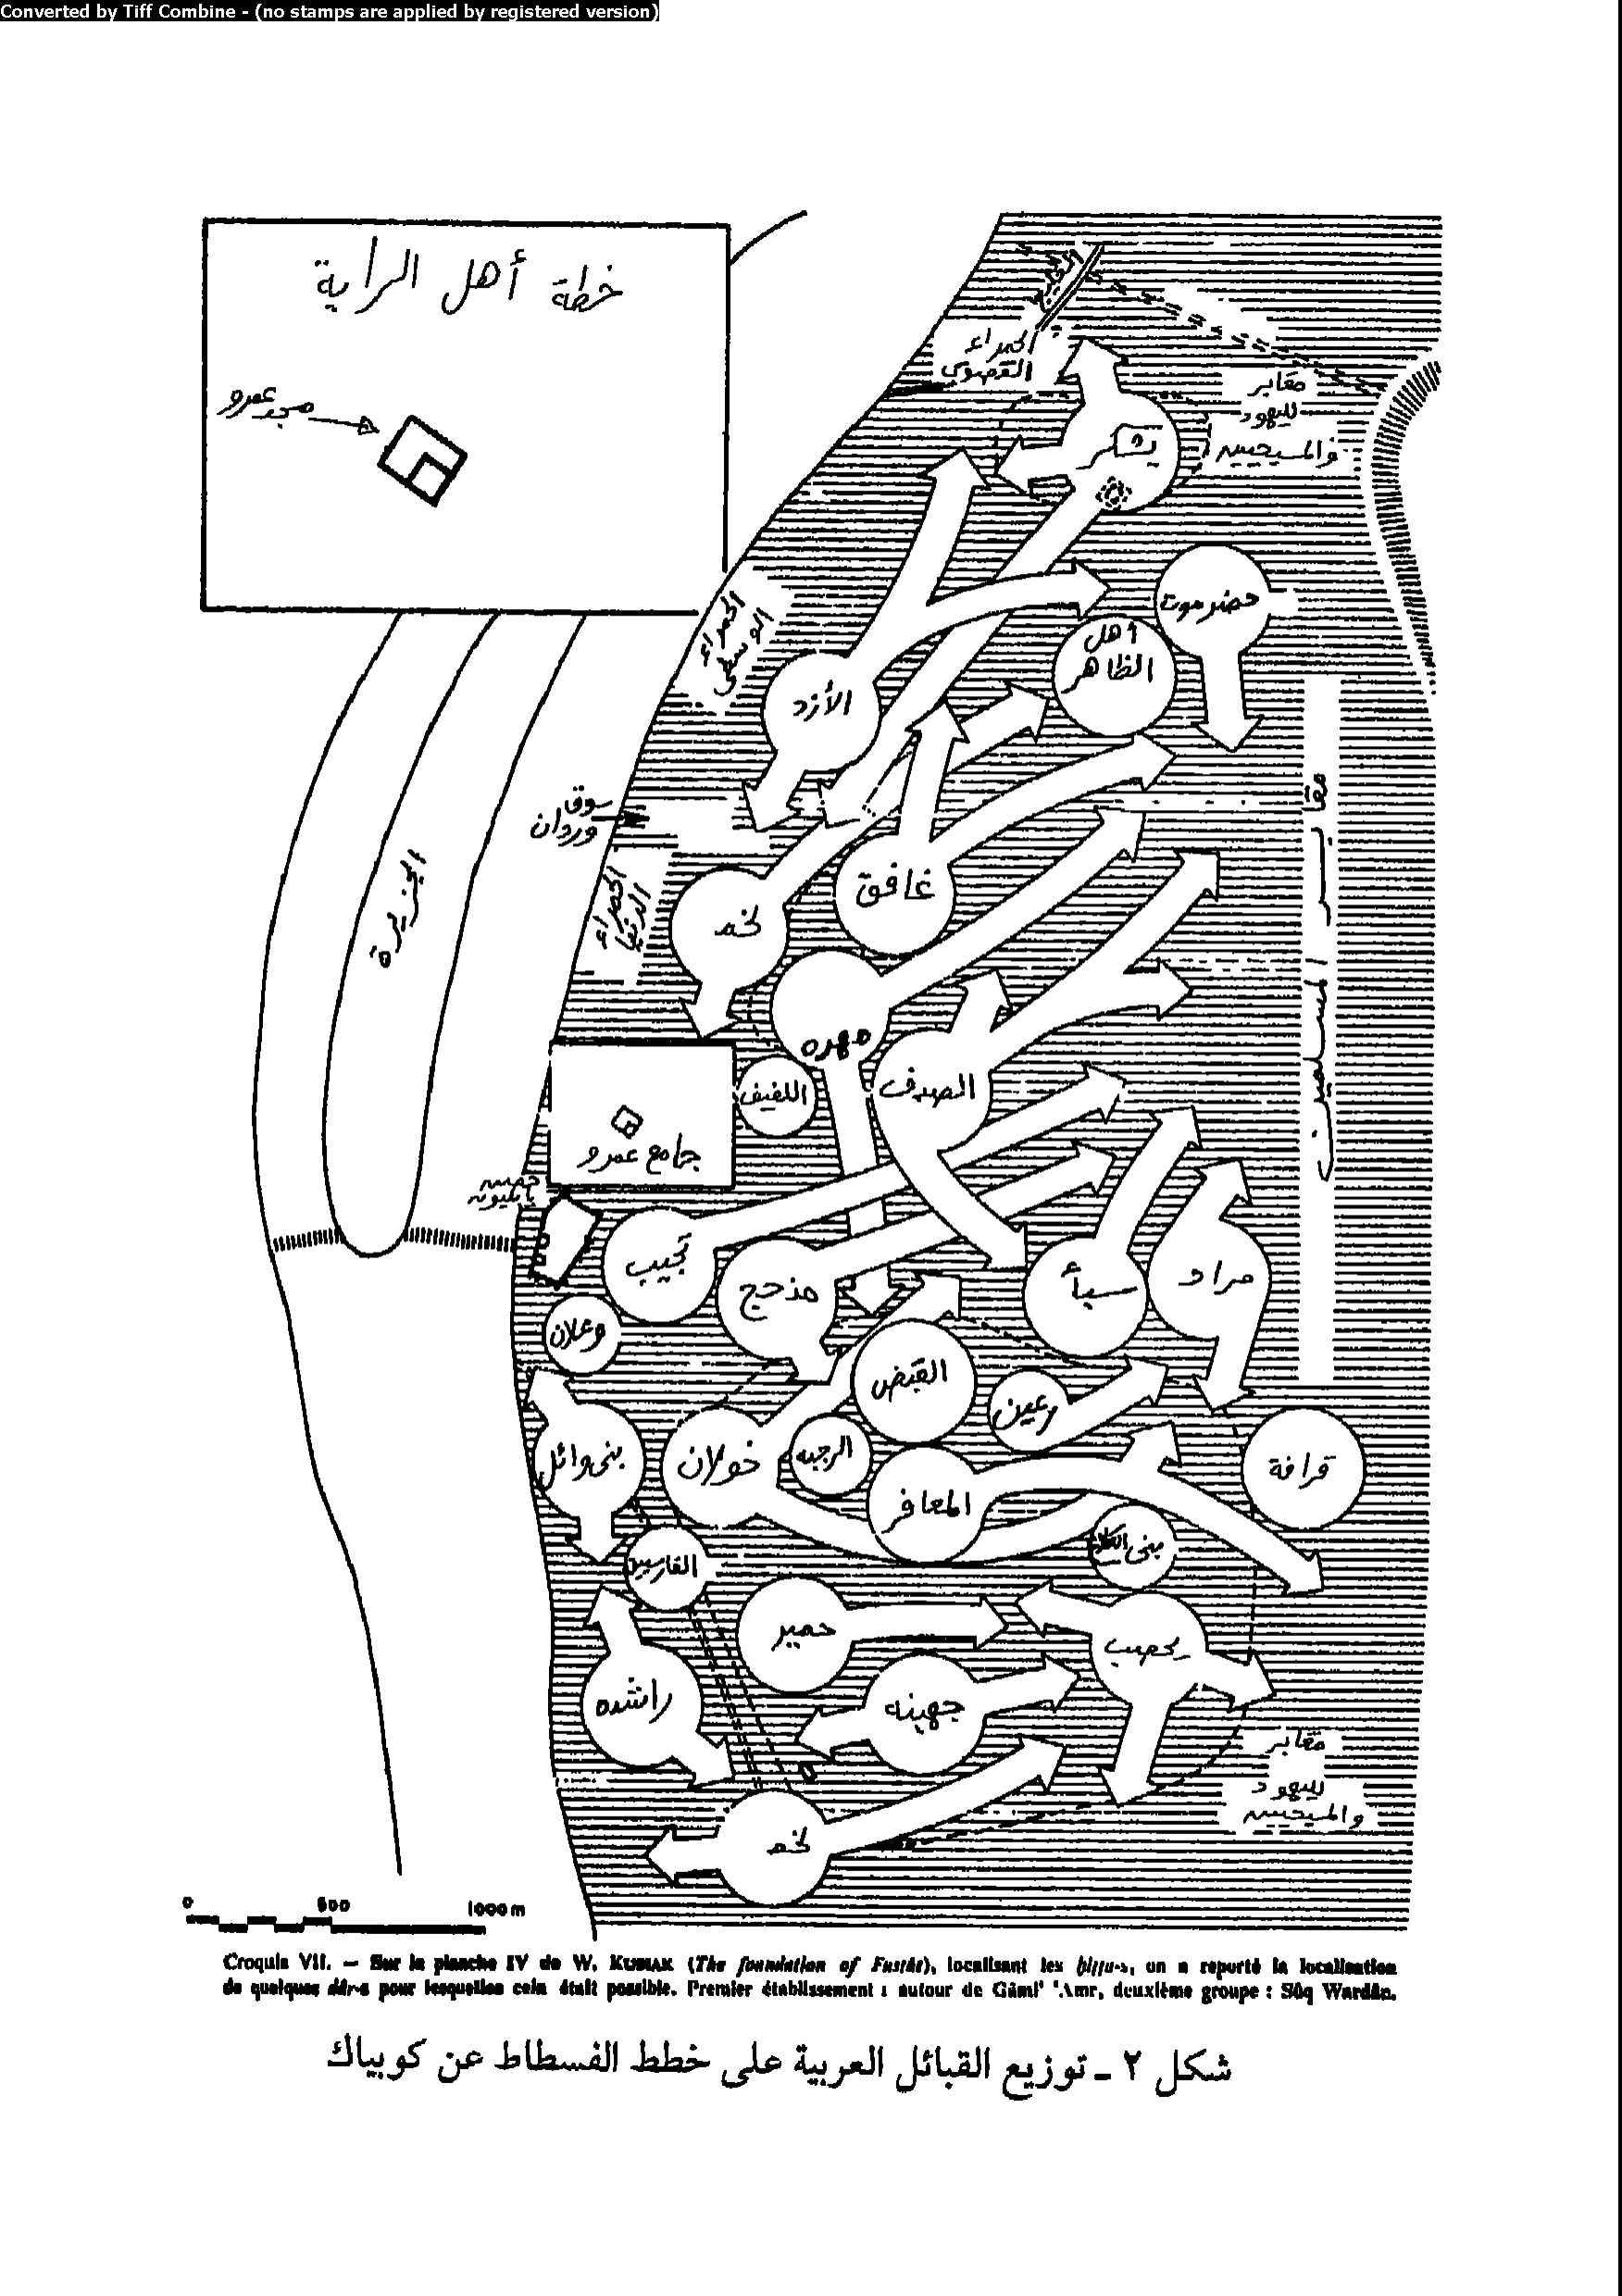 Converted by Tiff Combine - (no stamps are applied by registered version)
خطة أهل الراية
مسجد عمرو
الحمراء
القصوى
مقابر
لليهود
والمسيحيين
يشكر
حضرموت
أهل
الظاهر
الحمراء
الوسطى
الأزد
سوق
وردان
الحمراء
الدنيا
غافق
لخم
الجزيرة
مهره
الصدف
اللفيف
جامع عمرو
تجيب
مذحج
سبأ
مراد
وعلان
القبض
رعين
بنى وائل
خولان
الرحبه
المعافر
قرافة
الفارسيين
حمير
يحصب
راشده
جهينه
مقابر
لليهود
والمسيحيين
لخم
0 500 1000 m
Croquis VII. — Sur la planche IV de W. KUBIAK (The foundation of Fustât), localisant les , on a reporté la localisation
de quelques dâr-s pour lesquelles cela était possible. Premier établissement : autour de Gâmi' 'Amr, deuxième groupe : Sûq Wardân.
شكل ٢ ـ توزيع القبائل العربية على خطط الفسطاط عن كوبياك